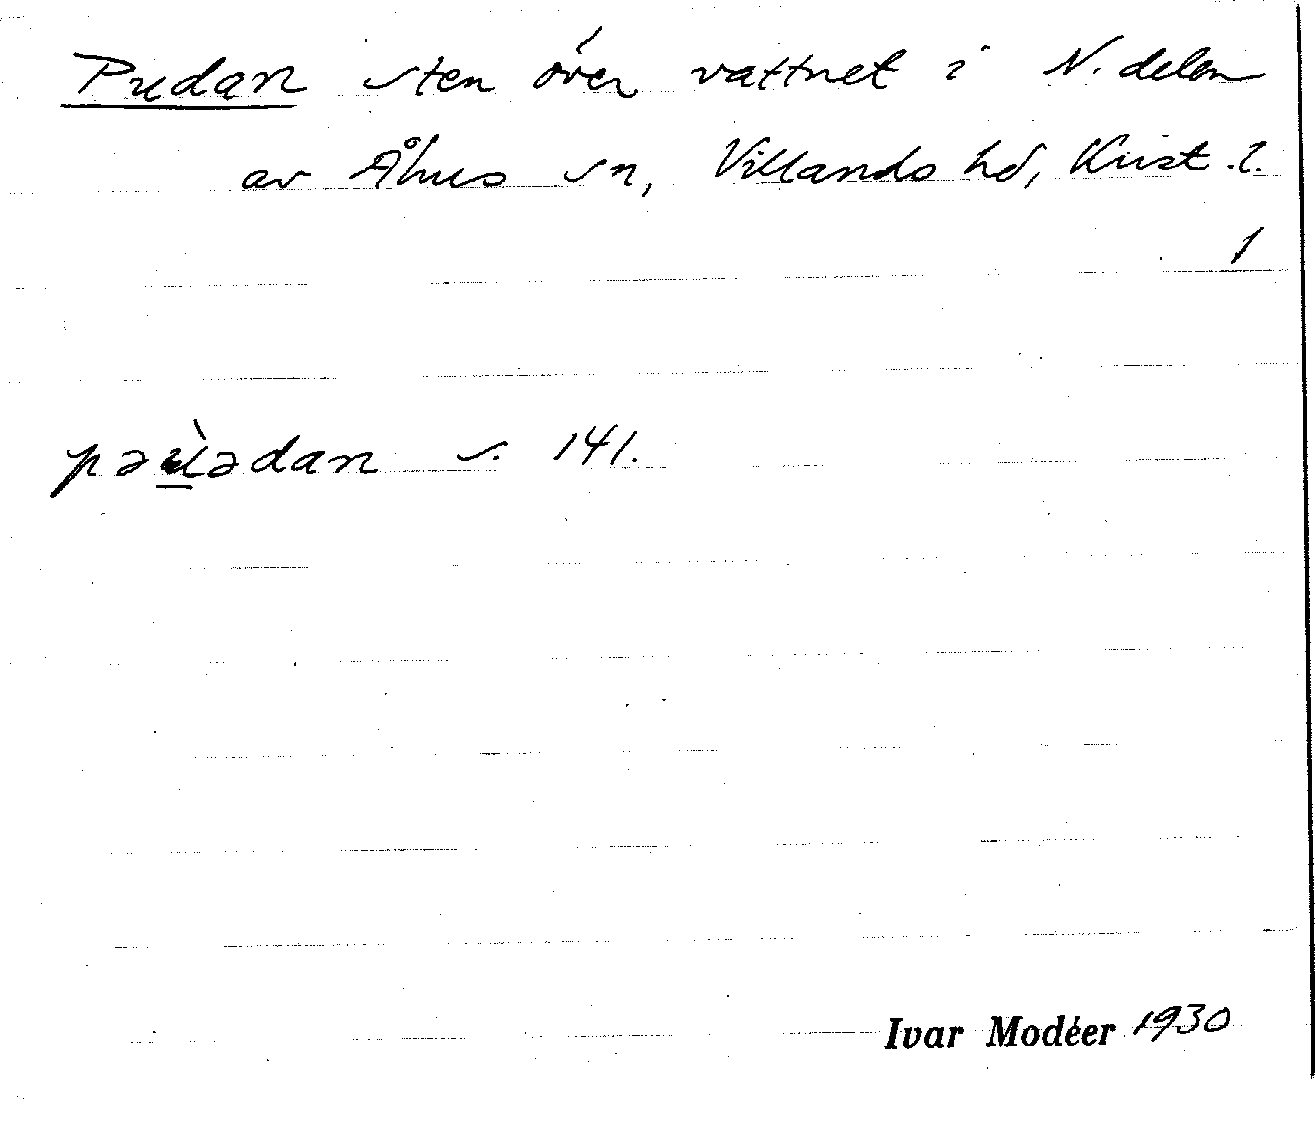 Pudan sten över vattnet i N. delen
av Åhus sn, Villands hd, Krist. l.
1
pəù̲ədan s. 141.
Ivar Modéer 1930